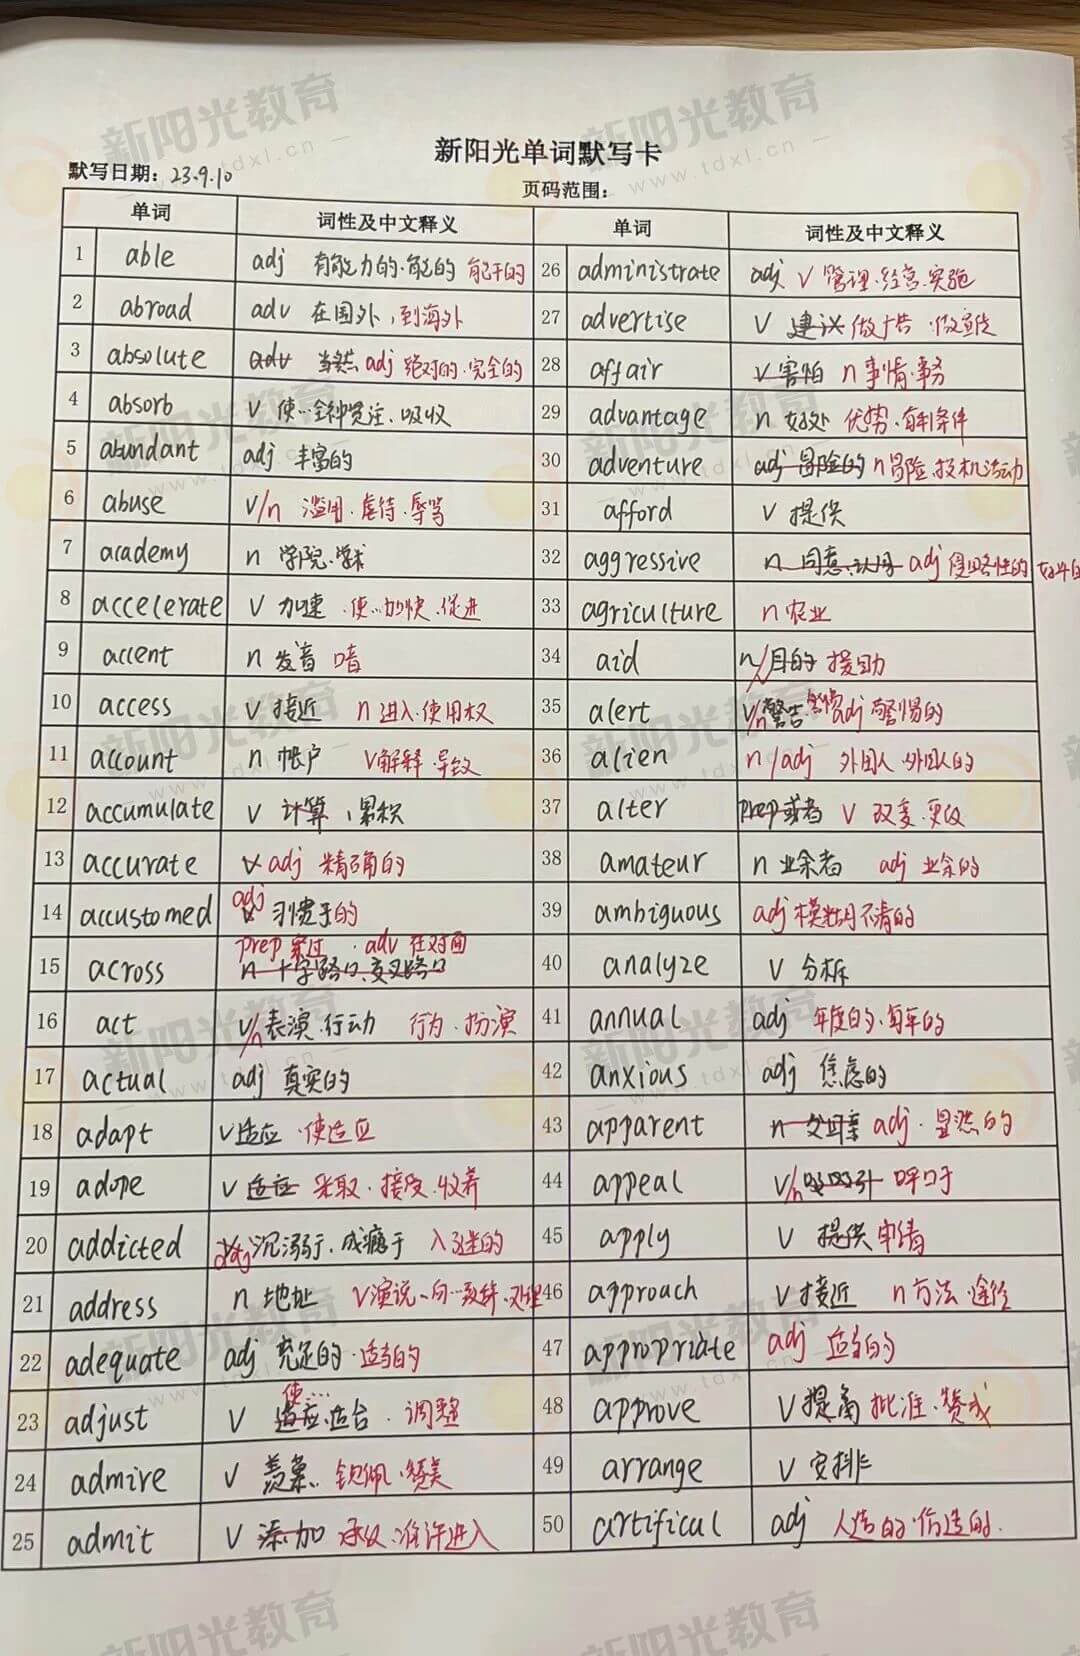 新阳光单词默写卡
默写日期：23.9.10 页码范围：
单词 词性及中文释义 单词 词性及中文释义
1 able adj 有能力的.能的 能干的 26 administrate adj v 管理.经营.实施
2 abroad adv 在国外,到海外 27 advertise v 建议 做广告.做宣传
3 absolute adv 当然 adj 绝对的.完全的 28 affair v 害怕 n 事情.事务
4 absorb v 使…全神贯注.吸收 29 advantage n 好处 优势.有利条件
5 abundant adj 丰富的 30 adventure adj 冒险的 n 冒险.投机活动
6 abuse v/n 滥用.虐待.辱骂 31 afford v 提供
7 academy n 学院.学术 32 aggressive n 同意.认同 adj 侵略性的
8 accelerate v 加速.使…加快.促进 33 agriculture n 农业
9 accent n 发音 口音 34 aid n/v 目的 援助
10 access v 接近 n 进入.使用权 35 alert v/n 警告 警惕 adj 警惕的
11 account n 帐户 v 解释.导致 36 alien n/adj 外国人.外国人的
12 accumulate v 计算,累积 37 alter prep 或者 v 改变.更改
13 accurate v adj 精确的 38 amateur n 业余者 adj 业余的
14 accustomed v adj 习惯于的 39 ambiguous adj 模糊不清的
15 across prep 穿过.adv 在对面 n 十字路口.交叉路口 40 analyze v 分析
16 act v/n 表演.行动 行为.扮演 41 annual adj 年度的.每年的
17 actual adj 真实的 42 anxious adj 焦虑的
18 adapt v 适应.使适应 43 apparent n 父母亲 adj.显然的
19 adope v 适应 采取.接受.收养 44 appeal v/n 吸引 呼吁
20 addicted v adj 沉溺于.成瘾于 入迷的 45 apply v 提供 申请
21 address n 地址 v 演说.向…致辞.处理 46 approach v 接近 n 方法.途径
22 adequate adj 充足的.适当的 47 appropriate adj 适当的
23 adjust v 使… 适应.适合.调整 48 approve v 提高 批准.赞成
24 admire v 羡慕.钦佩.赞美 49 arrange v 安排
25 admit v 添加 承认.准许进入 50 artificul adj 人造的.伪造的.
新阳光教育
www.tdxl.cn